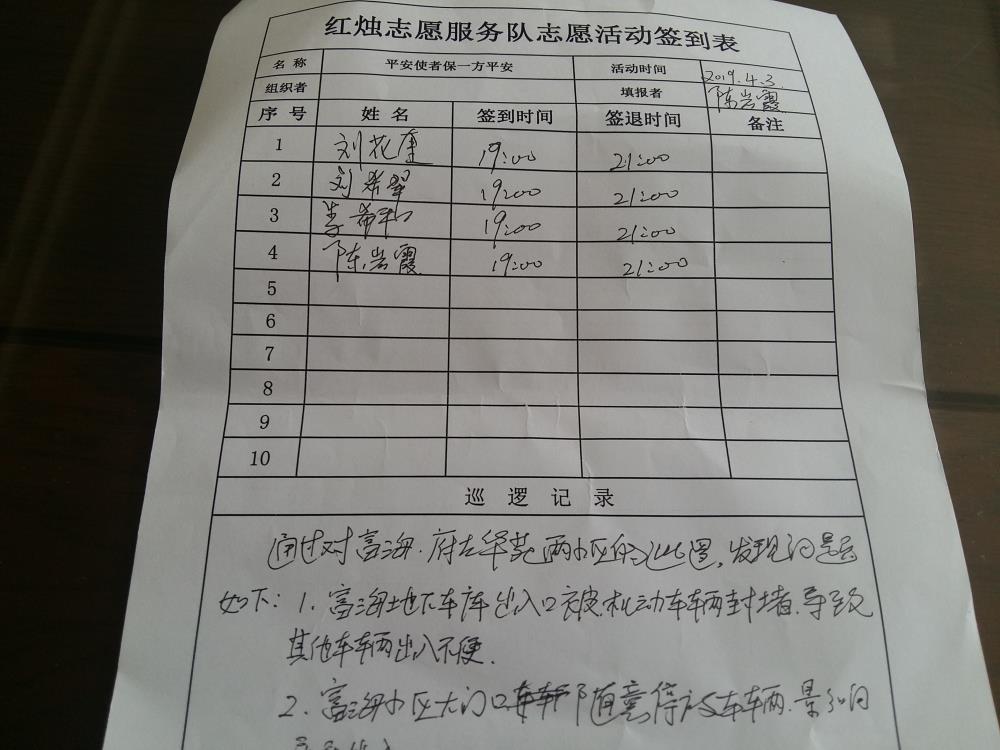 红烛志愿服务队志愿活动签到表
名 称 平安使者保一方平安 活动时间 2019.4.3
组织者 填报者 陈岩霞
序 号 姓 名 签到时间 签退时间 备注
1 刘花 19:00 21:00
2 刘希翠 19:00 21:00
3 李希和 19:00 21:00
4 陈岩霞 19:00 21:00
5
6
7
8
9
10
巡 逻 记 录
通过对富海.府左华苑两小区的巡逻,发现问题
如下: 1. 富海地下车库出入口被机动车辆封堵.导致
其他车辆出入不便.
2. 富海小区大门口 随意停放车辆.